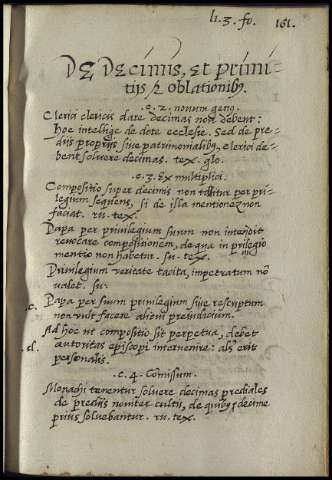 li. 3. fo. 161.
De Decimis, et primi-
tijs & oblationibꝰ.
.c. 2. novum genꝰ.
Clerici clericis dare decimas non debent:
hoc intellige de dote ecclesie. Sed de pre-
dijs proprijs sive patrimonialibꝰ, clerici de-
bent solvere decimas. tex. glo.
.c. 3. Ex multiplici.
Compositio super decimis non tollitur per pri-
legium sequens, si de illa mentionez non
faciat. ru. tex.
Papa per privilegium suum non intendit
revocare compositionem, de qua in prilegio
mentio non habetur. su. tex.
Privilegium veritate tacita, impetratum nō
valet. su.
.c. Papa per suum privilegium sive rescriptum
non vult facere alieni preiudicium.
Ad hoc ut compositio sit perpetua, debet
.d. autoritas episcopi intervenire: als erit
personalis.
.c. 4. Comissum.
Monachi tenentur solvere decimas prediales
de predijs noviter cultis, de quibꝰ decime
prius solvebantur. ru. tex.